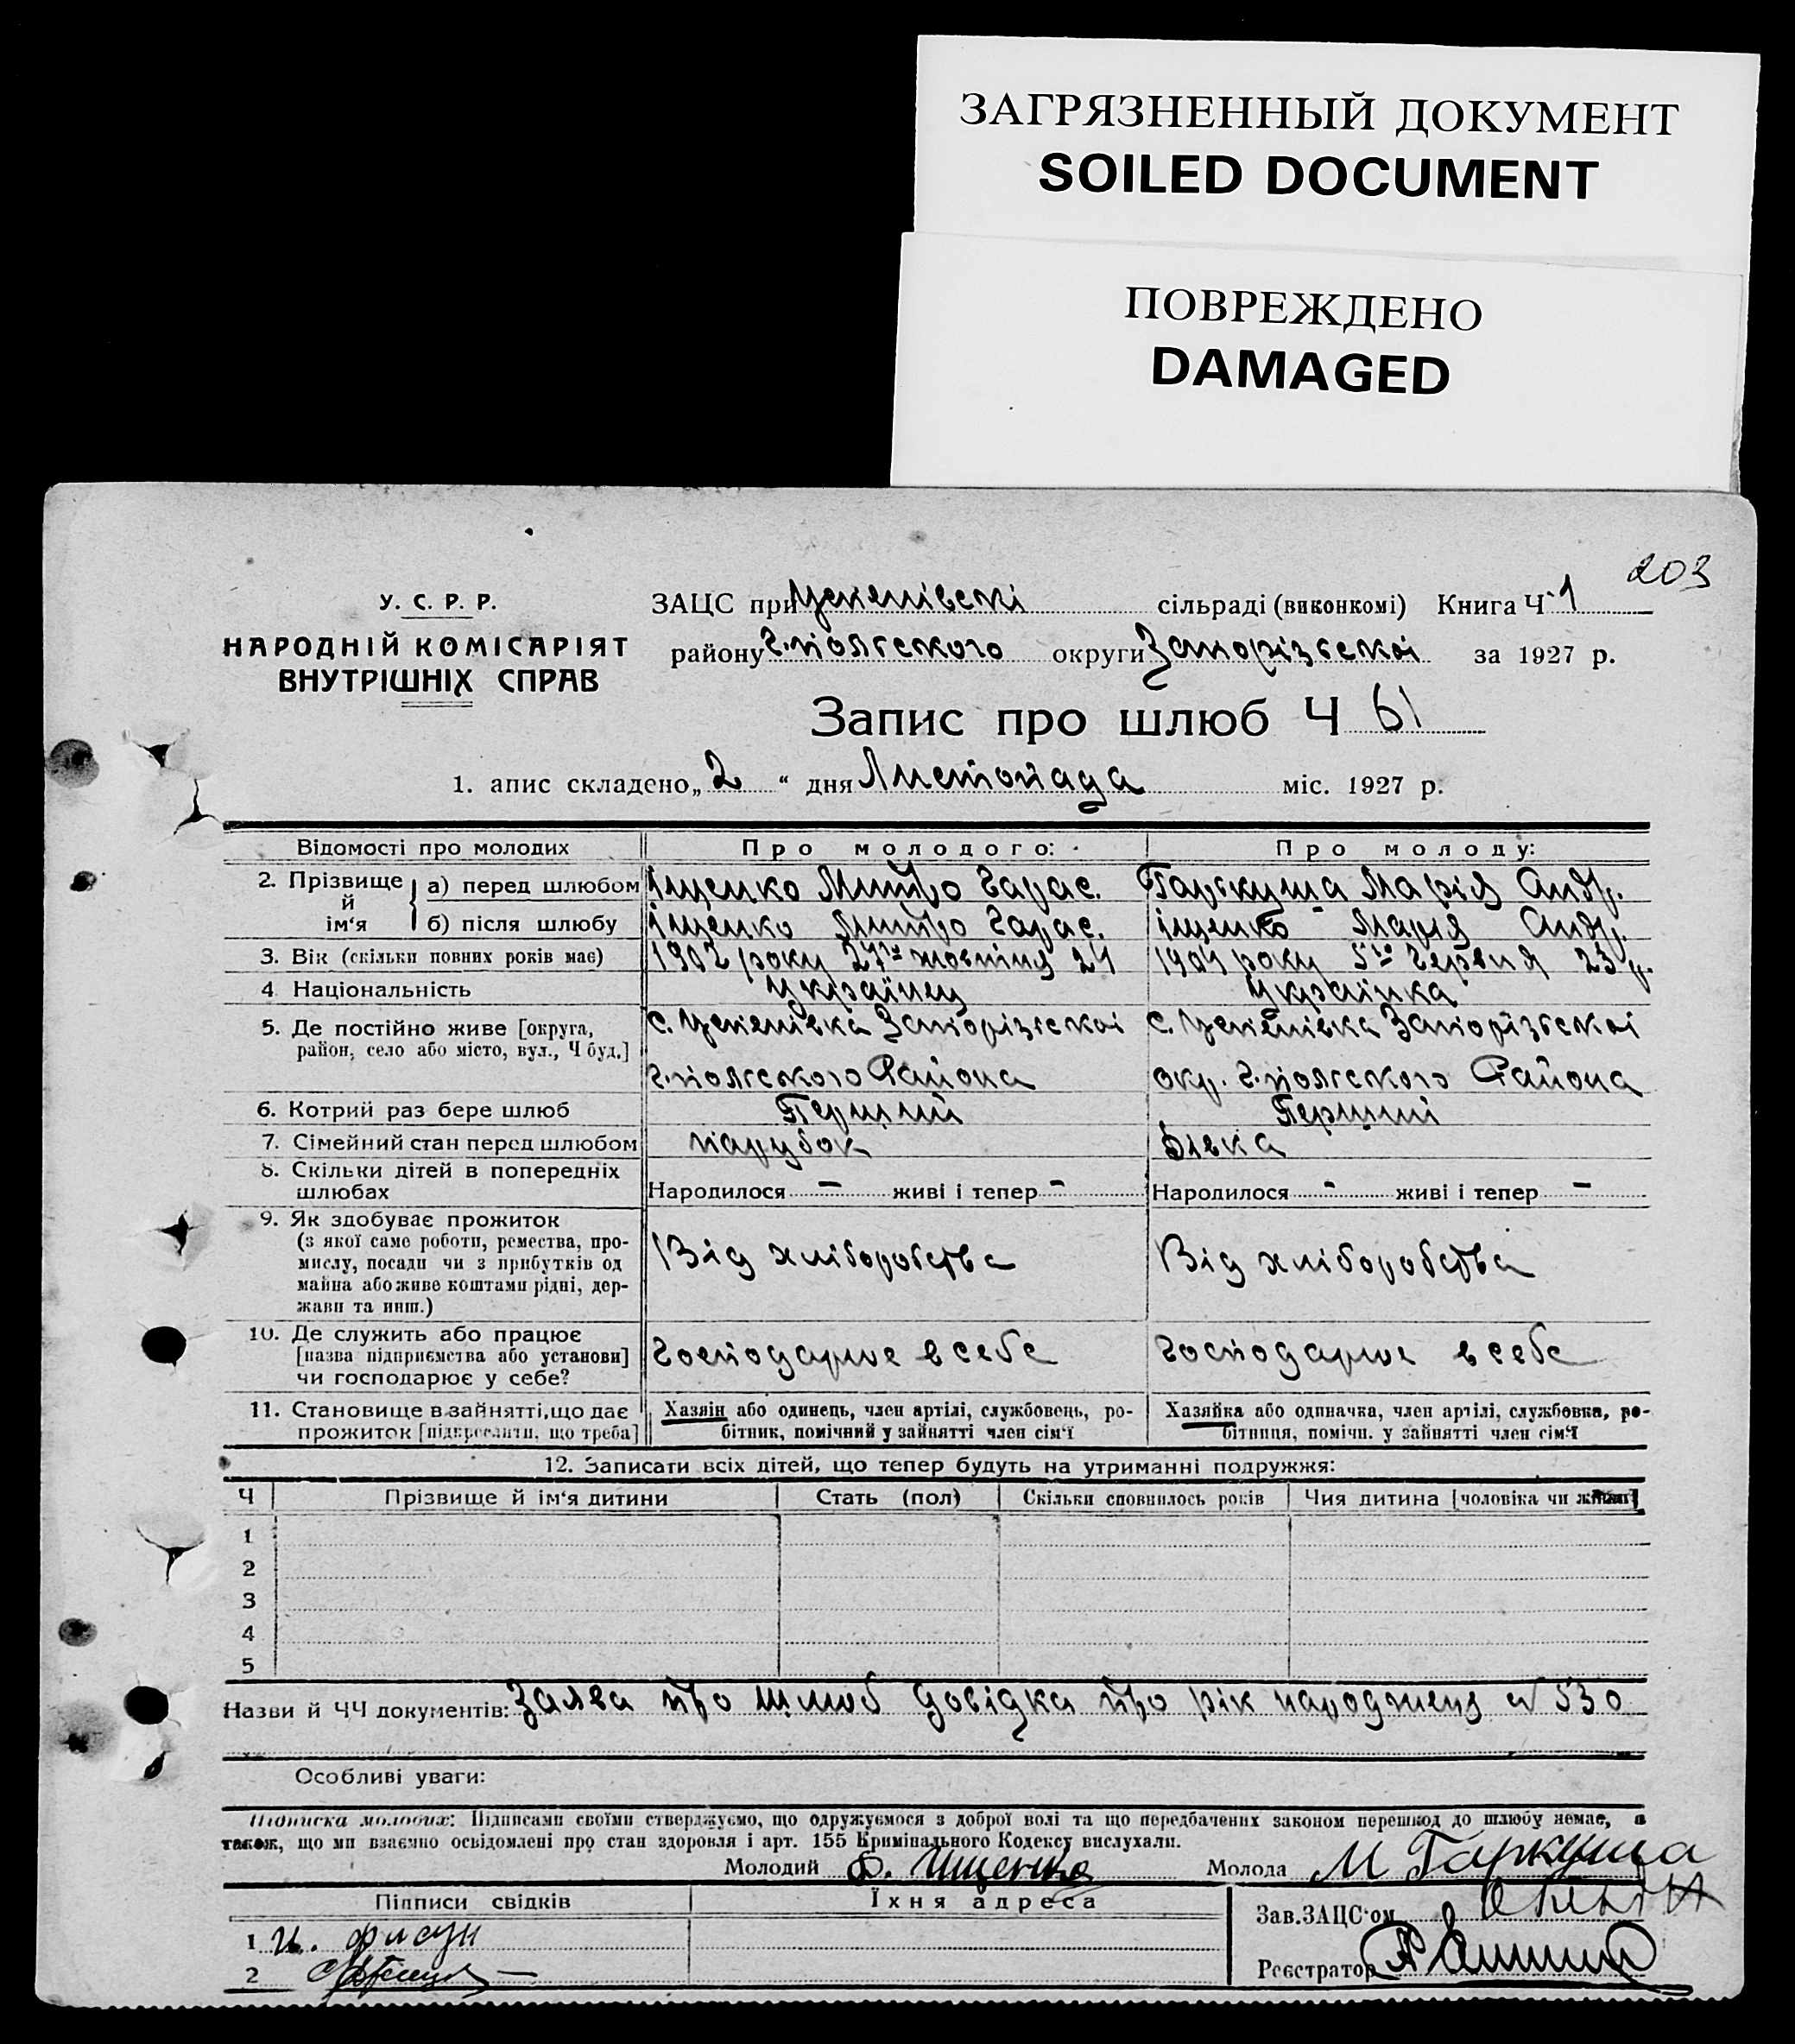 ЗАГРЯЗНЕННЫЙ ДОКУМЕНТ
SOILED DOCUMENT
ПОВРЕЖДЕНО
DAMAGED
203
У. С. Р. Р.
НАРОДНІЙ КОМІСАРІЯТ
ВНУТРІШНІХ СПРАВ
ЗАЦС при сільраді (виконкомі) Книга Ч 1
району г.польського округи Запорізської за 1927 р.
Запис про шлюб Ч 61
1. апис складено „ 2 “ дня Листопада міс. 1927 р.
Відомості про молодих Про молодого: Про молоду:
2. Прізвище й ім‘я а) перед шлюбом Іщенко Митро Гарас. Гаркуша Марія Андр.
б) після шлюбу Іщенко Митро Гарас. Іщенко Марія Андр.
3. Вік (скільки повних років має) 1902 року 27го жовтня 24 1904 року 5го Червня 23 р.
4 Національність українец українка
5. Де постійно живе [округа, район, село або місто, вул., Ч буд.] с. Запорізської с. Запорізської
г.польського Района окр. г.польського Района
6. Котрий раз бере шлюб Перший Перший
7. Сімейний стан перед шлюбом парубок дівка
8. Скільки дітей в попередніх шлюбах Народилося – живі і тепер – Народилося - живі і тепер –
9. Як здобуває прожиток
(з якої саме роботи, ремества, про-
мислу, посади чи з прибутків од
майна або живе коштами рідні, дер-
жави та инш.)
Від хліборобства Від хліборобства
10. Де служить або працює
[назва підприємства або установи]
чи господарює у себе?
Господарює в себе Господарює в себе
11. Становище в зайнятті, що дає
прожиток [підкреслити, що треба]
Хазяїн або одинець, член артілі, службовець, ро-
бітник, помічний у зайнятті член сім‘ї
Хазяйка або одиначка, член артілі, службовка, ро-
бітниця, помічн. у зайнятті член сім‘ї
12. Записати всіх дітей, що тепер будуть на утриманні подружжя:
Ч Прізвище й ім‘я дитини Стать (пол) Скільки сповнилось років Чия дитина [чоловіка чи жінки]
1
2
3
4
5
Назви й ЧЧ документів: Заява про шлюб довідка про рік народженя № 530
Особливі уваги:
Підписка молодих: Підписами своїми стверджуємо, що одружуємося з доброї волі та що передбачених законом перешкод до шлюбу немає, а
також, що ми взаємно освідомлені про стан здоровля і арт. 155 Кримінального Кодексу вислухали.
Молодий Іщенко Молода М Гаркуша
Підписи свідків Їхня адреса Зав.ЗАЦС‘ом
1 И.
2
Реєстратор